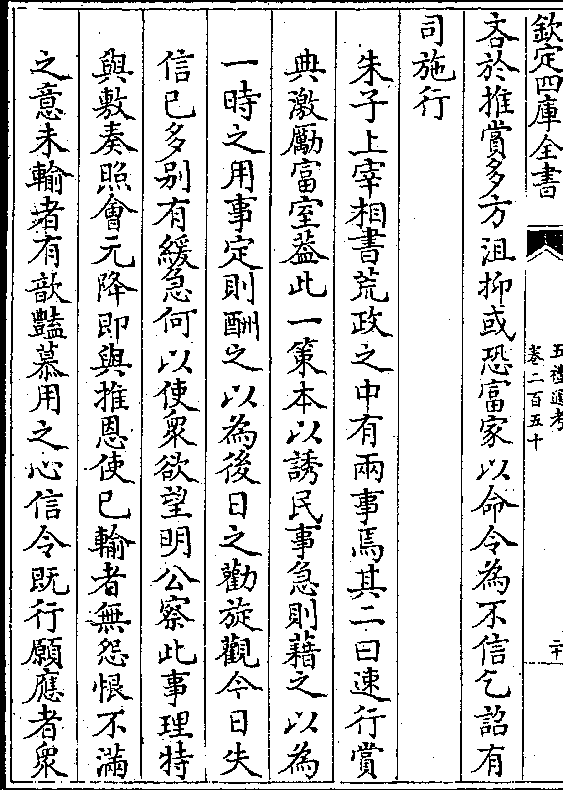 欽定四庫全書
五禮通考
卷二百五十
二十
吝於推賞多方沮抑或恐富家以命令為不信乞詔有
司施行
朱子上宰相書荒政之中有兩事焉其二曰速行賞
典激厲富室葢此一策本以誘民事急則藉之以為
一時之用事定則酬之以為後日之勸旋觀今日失
信已多别有緩急何以使衆欲望明公察此事理特
與敷奏照會元降即與推恩使已輸者無怨恨不滿
之意未輸者有歆豔慕用之心信令既行願應者衆